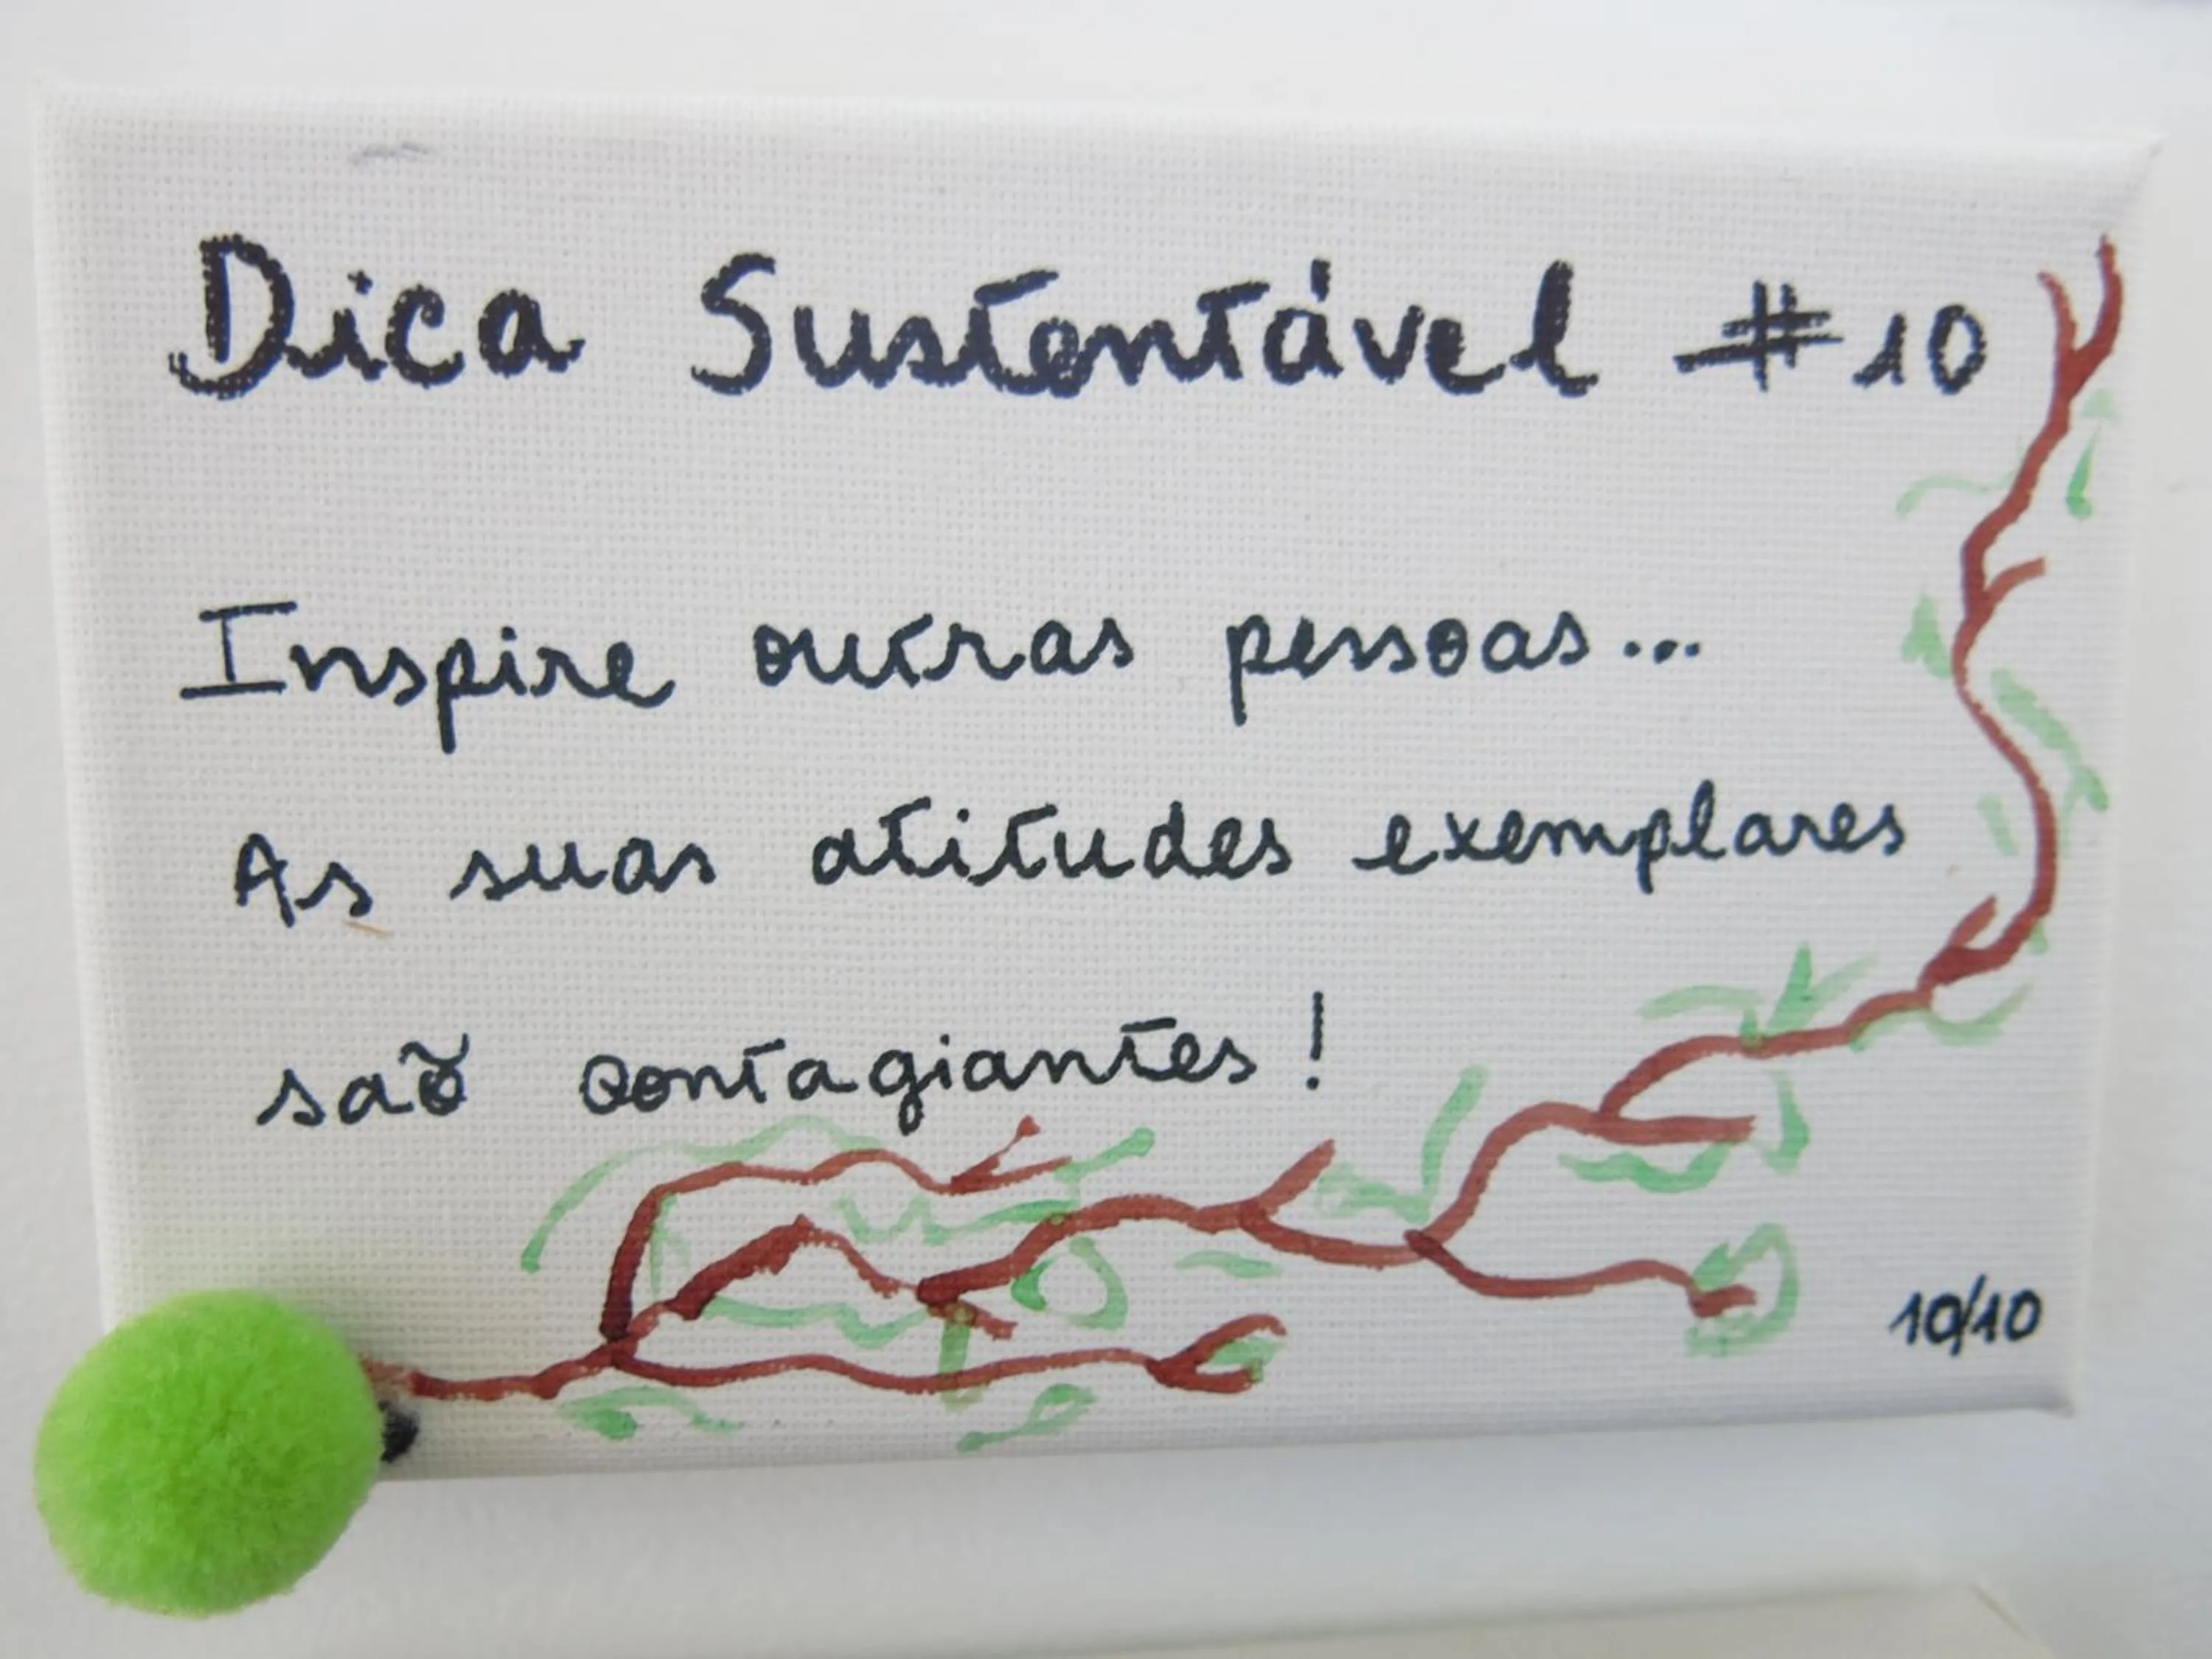 Dica Sustentável #10
Inspire outras pessoas...
As suas atitudes exemplares
são contagiantes!
10/10